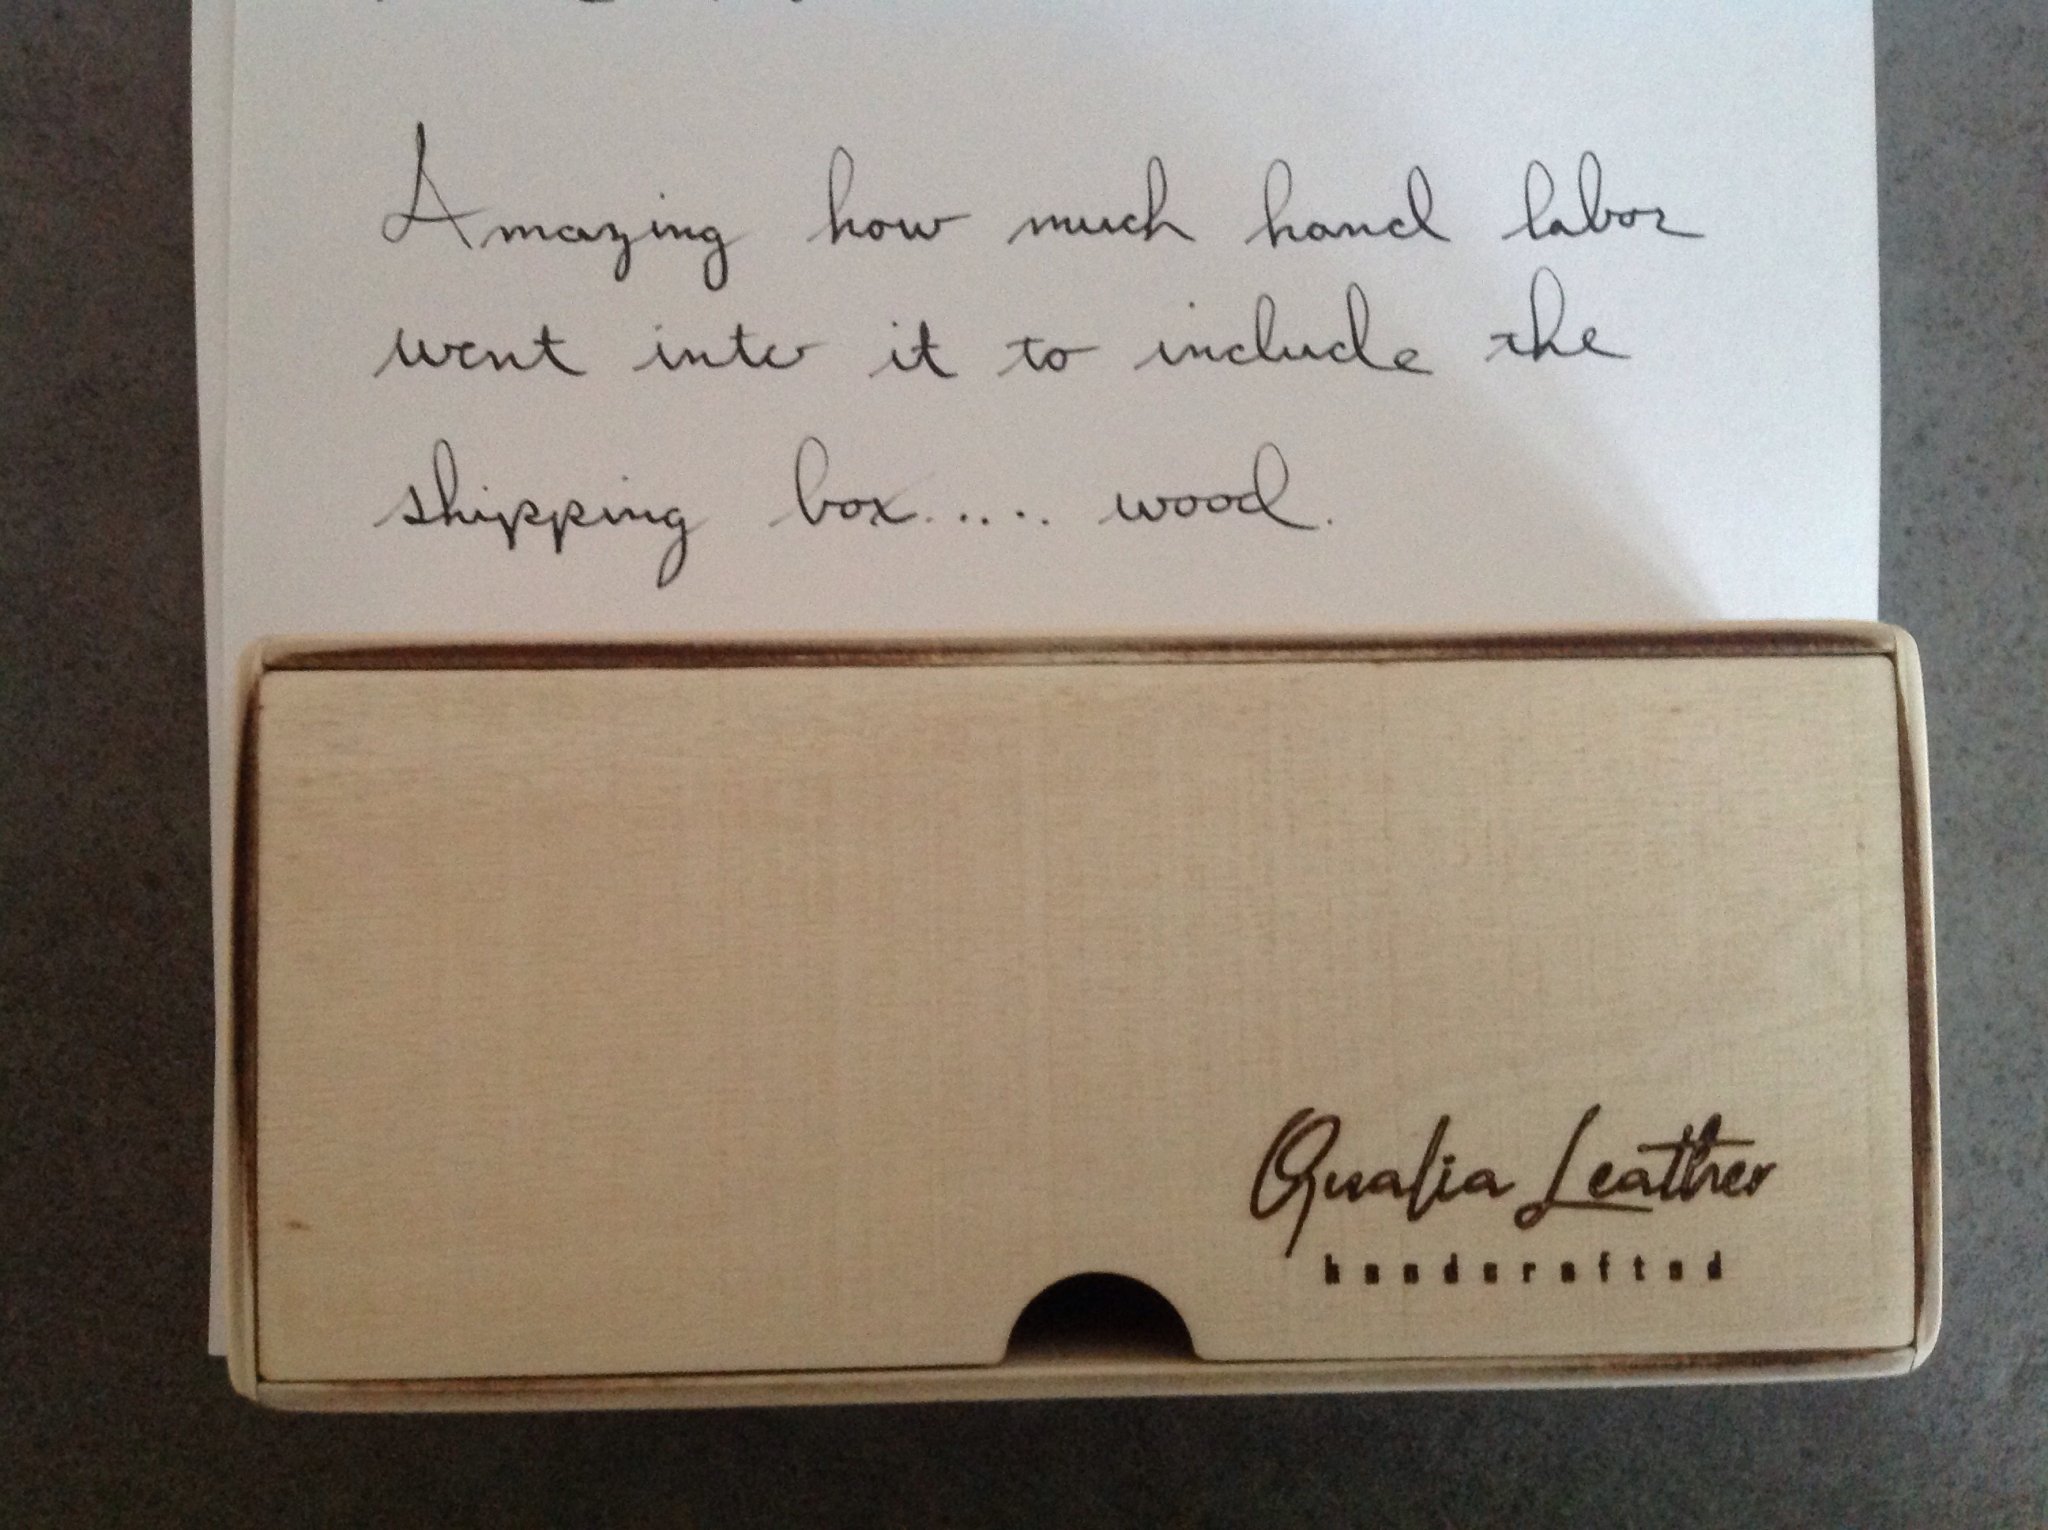 Amazing how much hand labor
went into it to include the
shipping box..... wood.
Qualia Leather
handcrafted